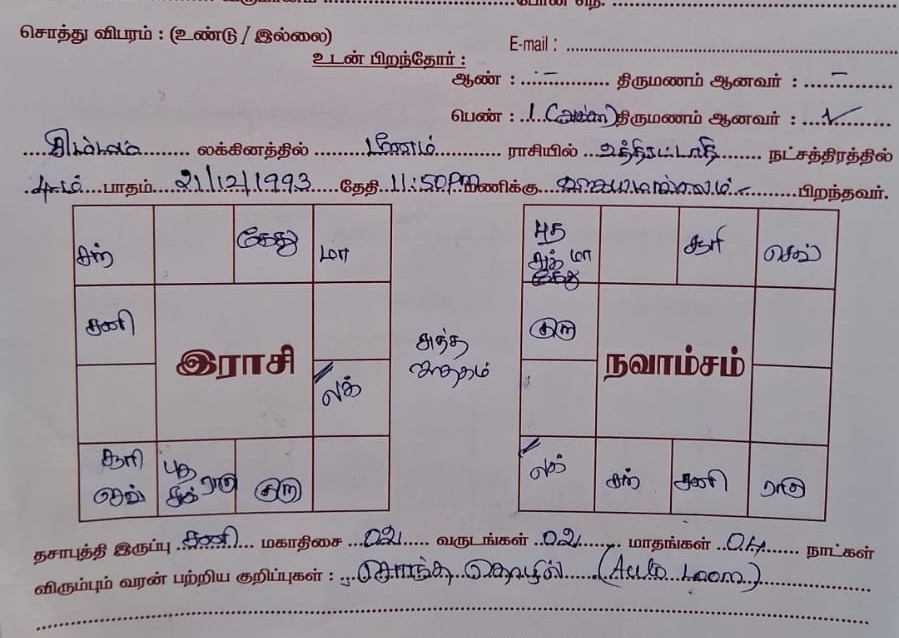 போன் எந்.
சொத்து விபரம் : (உண்டு / இல்லை) E-mail :
உடன் பிறந்தோர் :
ஆண் : - திருமணம் ஆனவர் : -
பெண் : 1 (அக்கா) திருமணம் ஆனவர் : ✓
சிம்மம் லக்கினத்தில் மீனம் ராசியில் உத்திரட்டாதி நட்சத்திரத்தில்
4ம் பாதம் 21/12/1993 தேதி 11:50PM மணிக்கு பிறந்தவர்.
சந் கேது மா
சனி
இராசி
லக்
சூரி செவ் புத சுக் ராகு குரு
புத சுக் மா கேது சூரி செவ்
குரு
நவாம்சம்
லக் சந் சனி ராகு
தசாபுத்தி இருப்பு சனி மகாதிசை 02 வருடங்கள் 02 மாதங்கள் 04 நாட்கள்
விரும்பும் வரன் பற்றிய குறிப்புகள் : சொந்த தொழில் (Auto Loom)